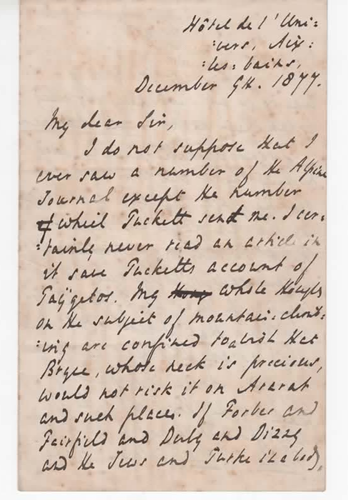 Hôtel de l'Uni-
:vers, Aix-
:les-bains,
December 9th. 1877.
My dear Sir,
I do not suppose that I
ever saw a number of the Alpine
Journal except the number
of which Tuckett sent me. I cer-
:tainly never read an article in
it save Tucketts account of
Taÿgetos. My whole thoughts
on the subject of mountain-climb-
:ing are confined to a wish that
Bryce, whose neck is precious,
would not risk it on Ararat
and such places. If Forbes and
Fairfield and Duby and Dizzy
and the Jews and Turks in a body,